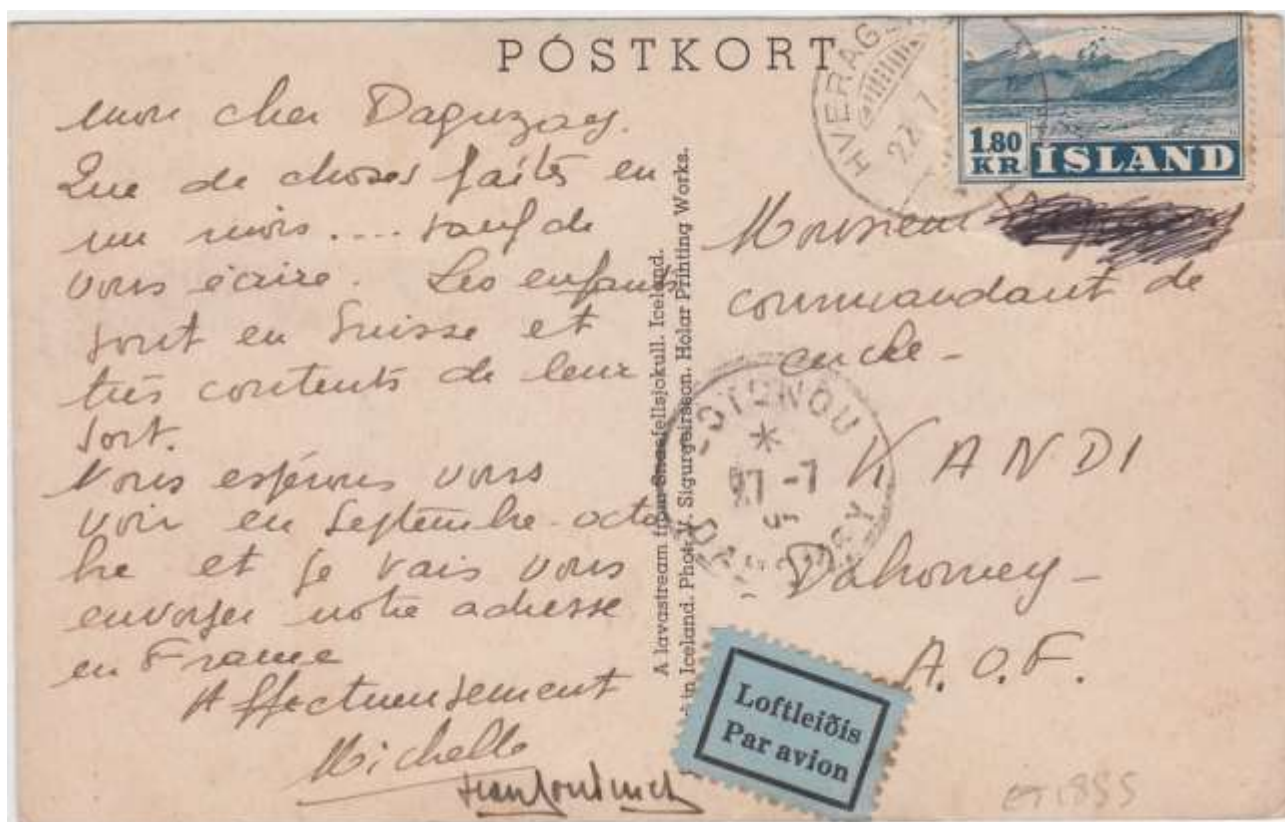 PÓSTKORT
mon cher Daguzay.
Que de choses faites en
un mois.... sauf de
vous écrire. Les enfants
sont en Suisse et
très contents de leur
sort.
Nous espérons vous
voir en Septembre-octo
bre et je vais vous
envoyer notre adresse
en France
Affectueusement
Michelle
A lavastream from Snaefellsjokull. Iceland.
in Iceland. Phot. V. Sigurgeirsson. Holar Printing Works.
HVERAG
22. 7
1.80
KR ÍSLAND
Monsieur
commandant de
cercle-
OTONOU
27-7
5
KANDI
Dahomey-
A.O.F.
Loftleiðis
Par avion